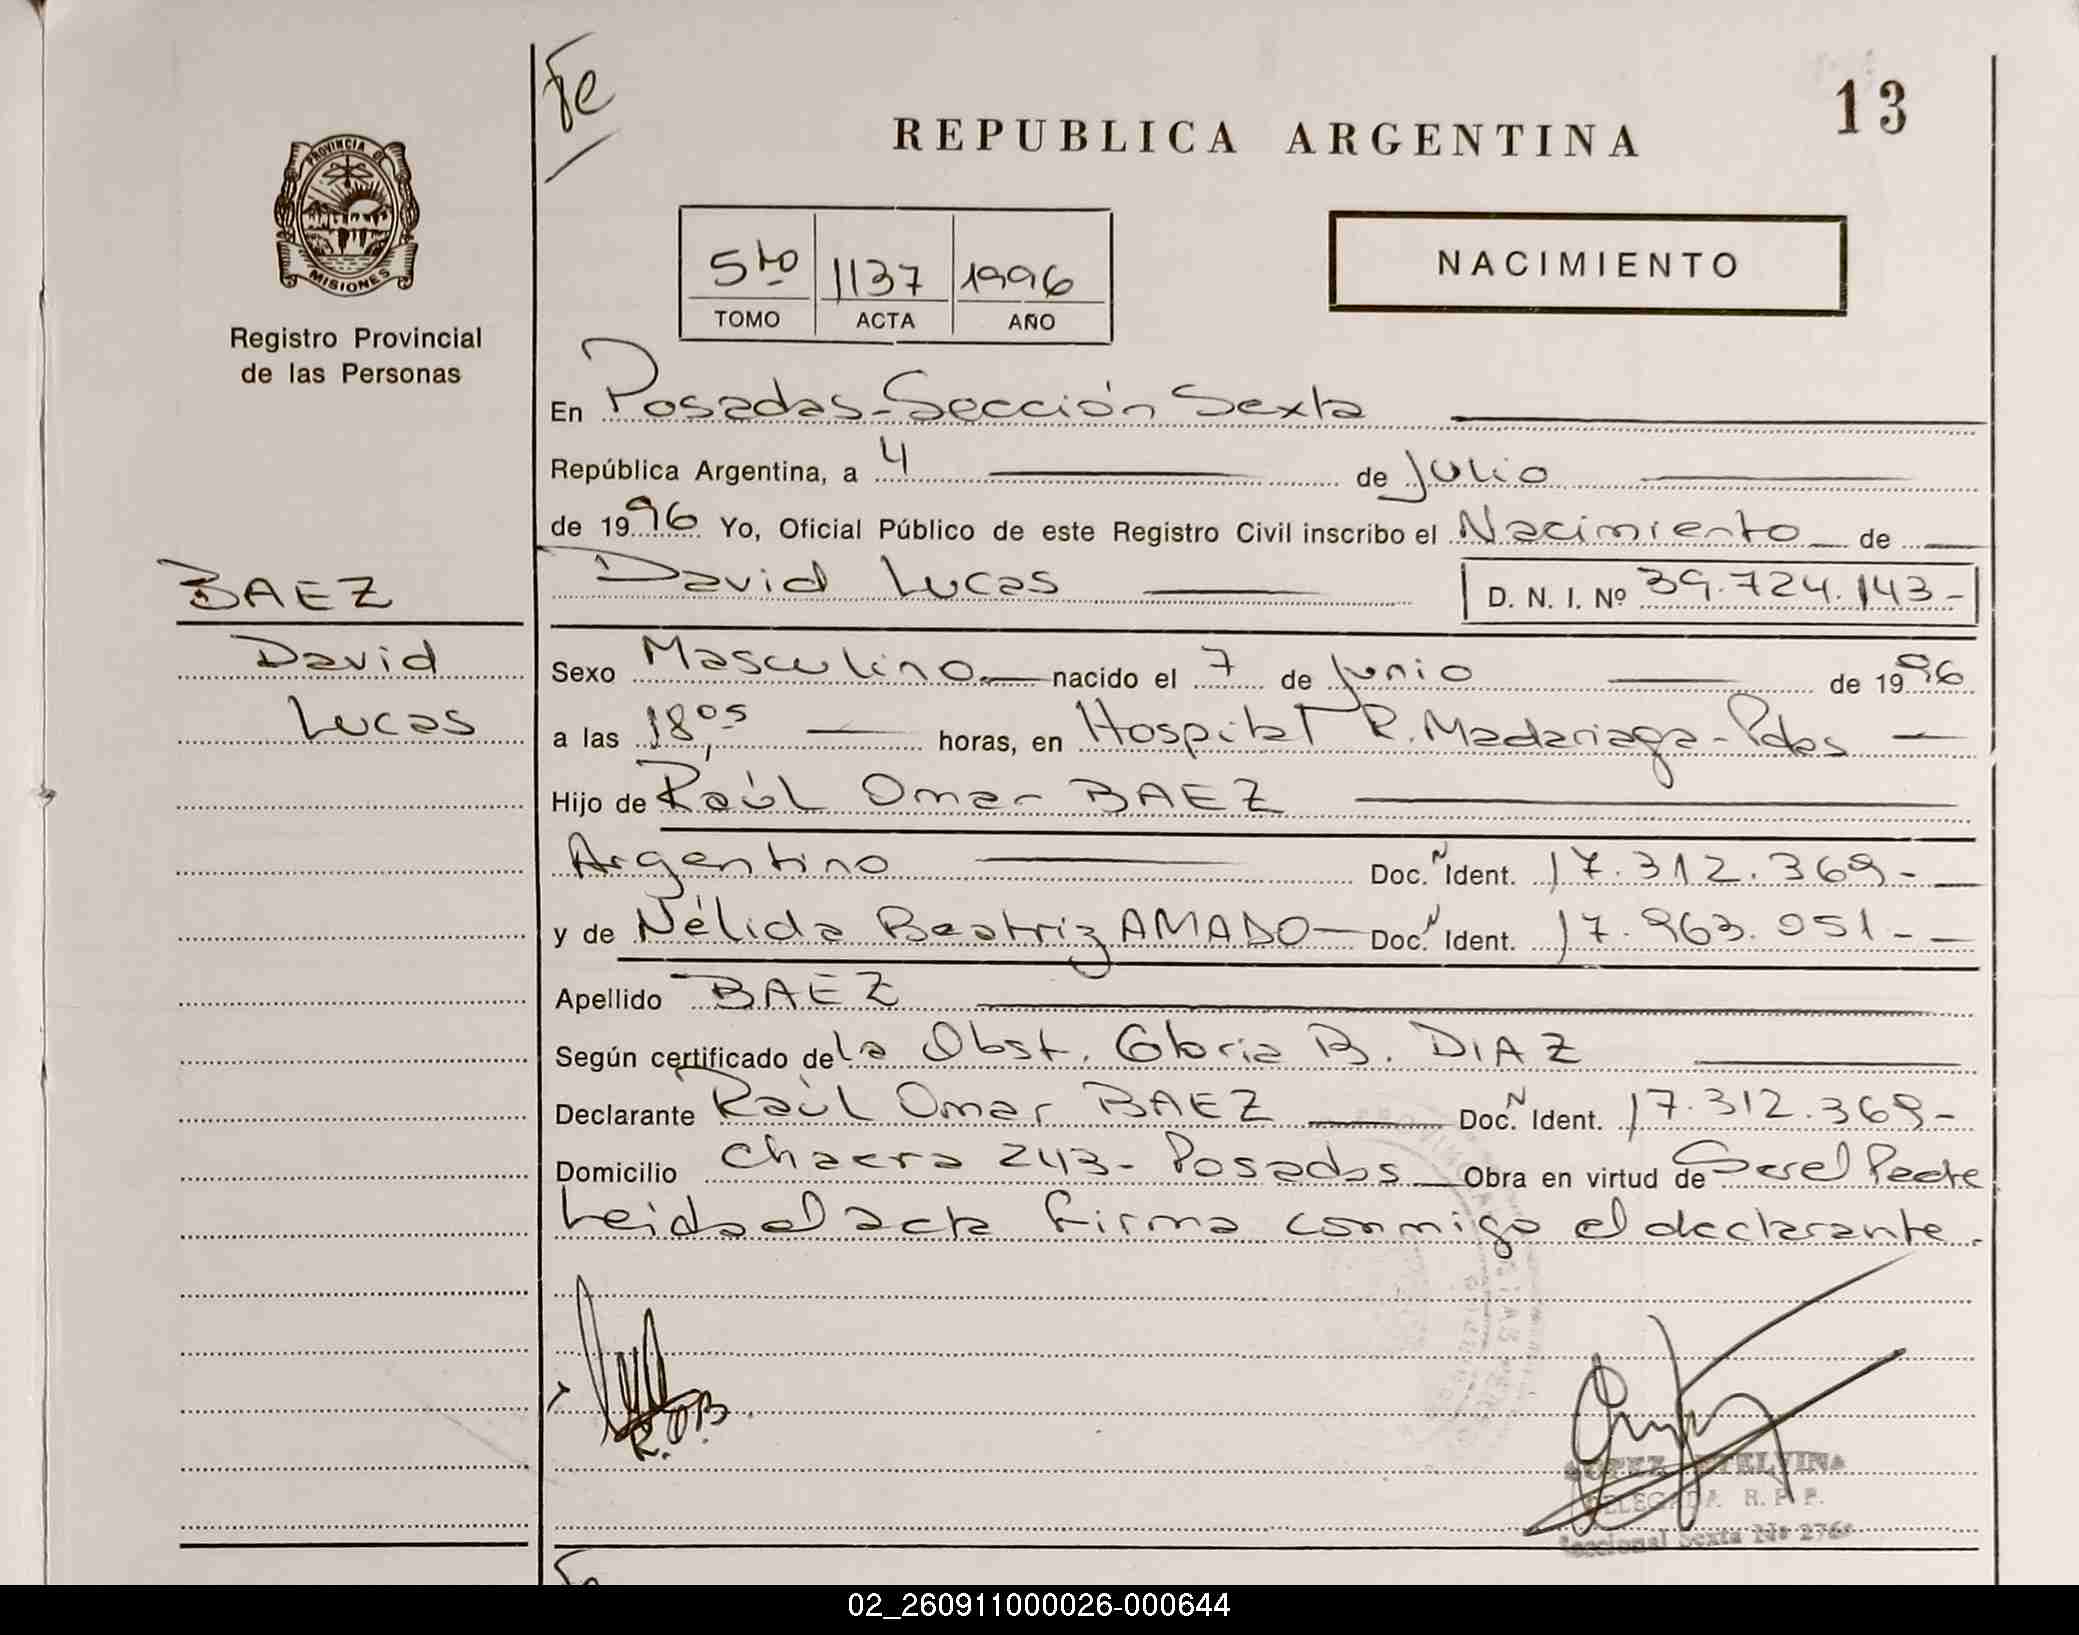 Fe
13
REPUBLICA ARGENTINA
PROVINCIA DE
MISIONES
Registro Provincial
de las Personas
5to 1137 1996
TOMO ACTA AÑO
NACIMIENTO
En Posadas - Sección Sexta
República Argentina, a 4 de Julio
de 1996 Yo, Oficial Público de este Registro Civil inscribo el Nacimiento de
David Lucas D. N. I. Nº 39.724.143-
BAEZ
David
Lucas
Sexo Masculino nacido el 7 de Junio de 1996
a las 18,05 horas, en Hospital R. Madariaga - Pdas
Hijo de Raúl Omar BAEZ
Argentino Doc. N Ident. 17.312.369-
y de Nélida Beatriz AMADO Doc. N Ident. 17.963.051-
Apellido BAEZ
Según certificado de la Obst. Gloria B. DIAZ
Declarante Raúl Omar BAEZ Doc. N Ident. 17.312.369-
Domicilio Chacra 243- Posadas Obra en virtud de Ser el Padre
Leida el acta firma conmigo el declarante.
R.O.B.
ETELVINA
DELEGADA R. P. P.
Seccional Sexta Nº 276
02_260911000026-000644